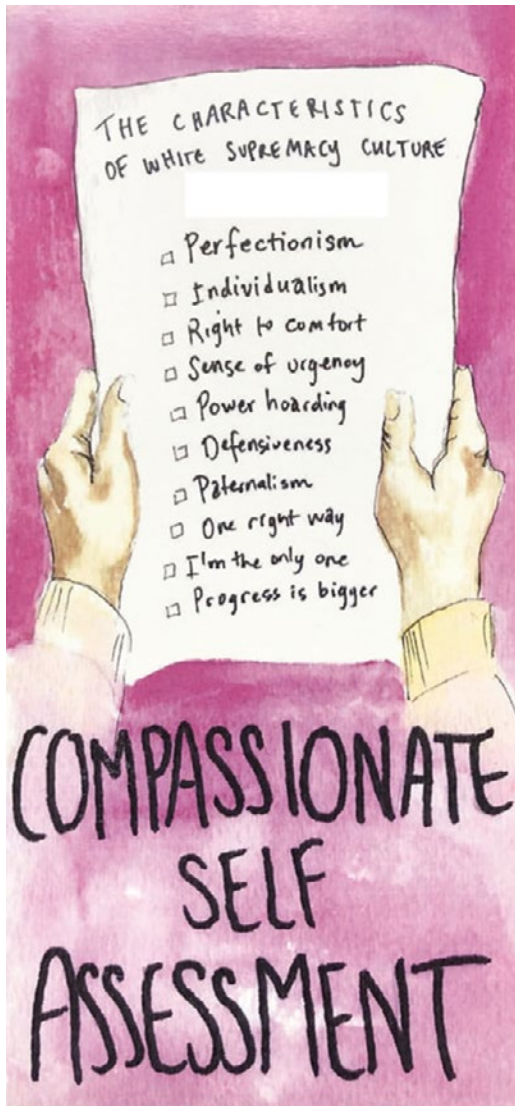 THE CHARACTERISTICS
OF WHITE SUPREMACY CULTURE
Perfectionism
Individualism
Right to comfort
Sense of urgency
Power hoarding
Defensiveness
Paternalism
One right way
I'm the only one
Progress is bigger
COMPASSIONATE
SELF
ASSESSMENT